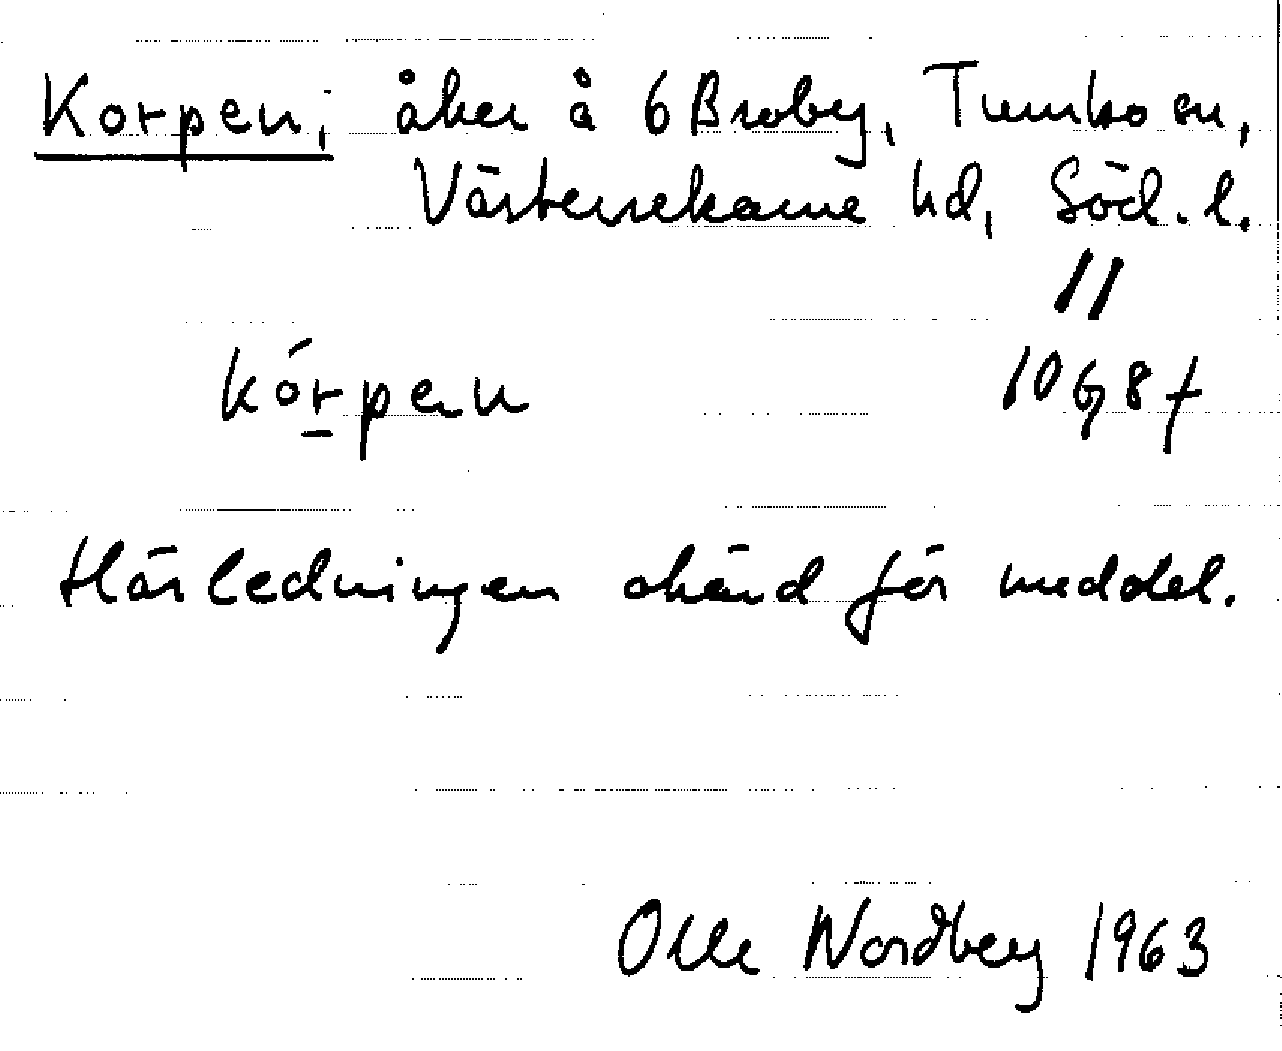 Korpen; åker å 6 Broby, Tumbo sn,
Västerrekarne hd, Söd. l.
11
kórpen 10G8f
Härledningen okänd för meddel.
Olle Nordberg 1963